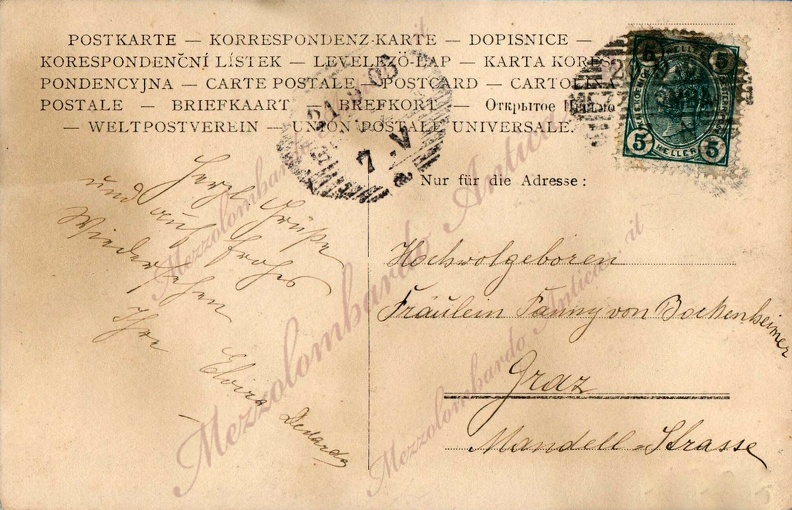 POSTKARTE — KORRESPONDENZ-KARTE — DOPISNICE —
KORESPONDENČNÍ LÍSTEK — LEVELEZŐ-LAP — KARTA KORES-
PONDENCYJNA — CARTE POSTALE — POSTCARD — CARTOLINA
POSTALE — BRIEFKAART — BREFKORT — Открытое Письмо
— WELTPOSTVEREIN — UNION POSTALE UNIVERSELLE.
5 HELLER 5
5 HELLER 5
7-V
Nur für die Adresse:
Herzl. Grüße
und auf frohes
Wiedersehen
Ihre Elvira
Hochwolgeboren
Fräulein Fanny von Bockenheimer
Graz
Mandell-Strasse
Mezzolombardo Antica .it
Mezzolombardo Antica .it
Mezzolombardo Antica .it